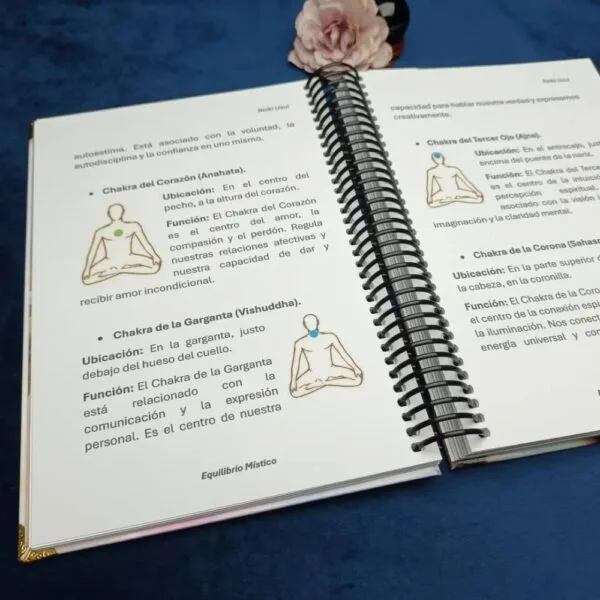 Reiki Usui
autoestima. Está asociado con la voluntad, la
autodisciplina y la confianza en uno mismo.
• Chakra del Corazón (Anahata).
Ubicación: En el centro del
pecho, a la altura del corazón.
Función: El Chakra del Corazón
es el centro del amor, la
compasión y el perdón. Regula
nuestras relaciones afectivas y
nuestra capacidad de dar y
recibir amor incondicional.
• Chakra de la Garganta (Vishuddha).
Ubicación: En la garganta, justo
debajo del hueso del cuello.
Función: El Chakra de la Garganta
está relacionado con la
comunicación y la expresión
personal. Es el centro de nuestra
Equilibrio Místico
Reiki Usui
capacidad para hablar nuestra verdad y expresarnos
creativamente.
• Chakra del Tercer Ojo (Ajna).
Ubicación: En el entrecejo, just
encima del puente de la nariz.
Función: El Chakra del Terce
es el centro de la intuició
percepción espiritual.
asociado con la visión i
imaginación y la claridad mental.
• Chakra de la Corona (Sahasr
Ubicación: En la parte superior d
la cabeza, en la coronilla.
Función: El Chakra de la Coro
el centro de la conexión espi
la iluminación. Nos conect
energía universal y con